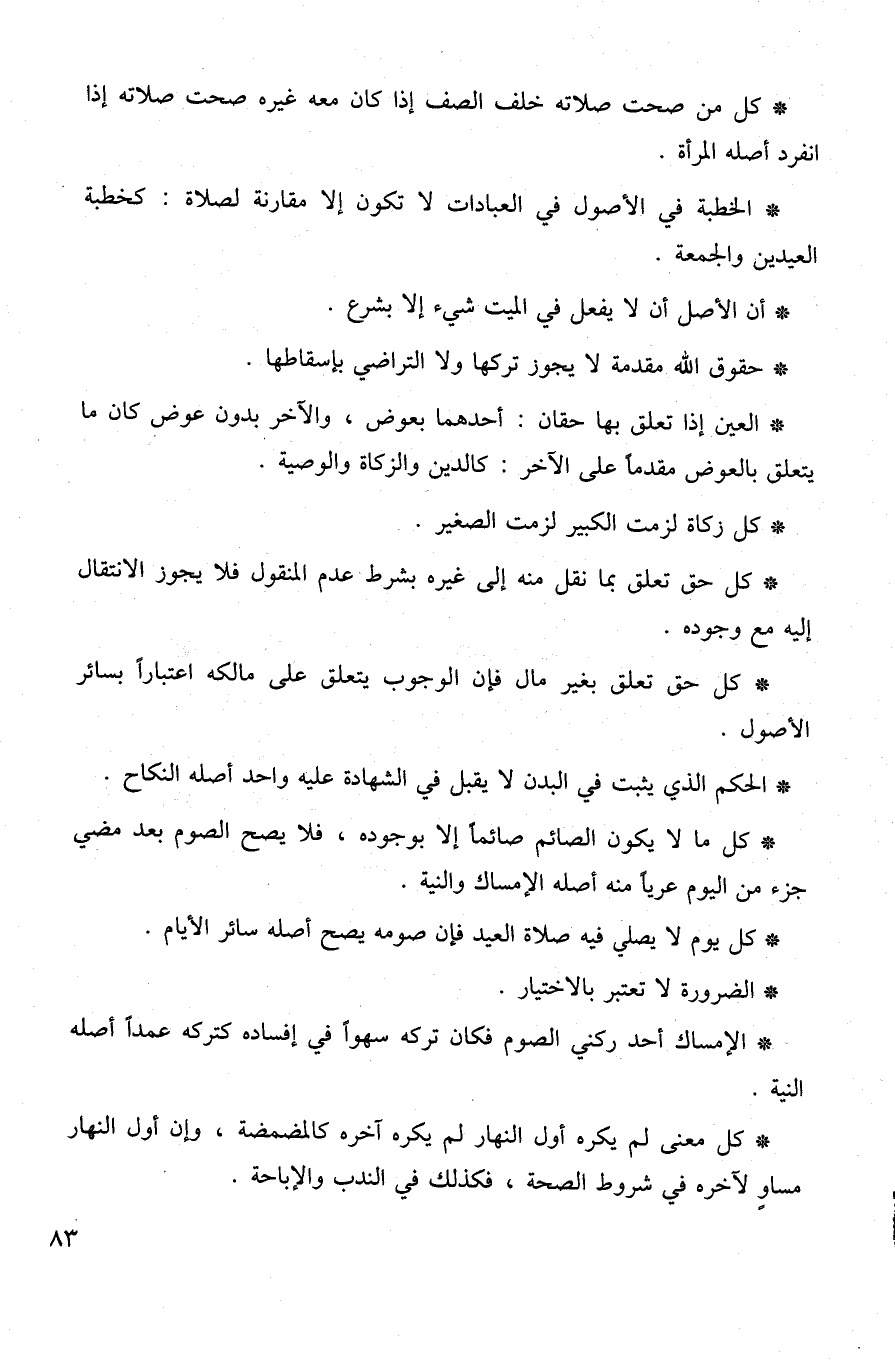 * كل من صحت صلاته خلف الصف إذا كان معه غيره صحت صلاته إذا
انفرد أصله المرأة .
* الخطبة في الأصول في العبادات لا تكون إلا مقارنة لصلاة : كخطبة
العيدين والجمعة .
* أن الأصل أن لا يفعل في الميت شيء إلا بشرع .
* حقوق الله مقدمة لا يجوز تركها ولا التراضي بإسقاطها .
* العين إذا تعلق بها حقان : أحدهما بعوض ، والآخر بدون عوض كان ما
يتعلق بالعوض مقدماً على الآخر : كالدين والزكاة والوصية .
* كل زكاة لزمت الكبير لزمت الصغير .
* كل حق تعلق بما نقل منه إلى غيره بشرط عدم المنقول فلا يجوز الانتقال
إليه مع وجوده .
* كل حق تعلق بغير مال فإن الوجوب يتعلق على مالكه اعتباراً بسائر
الأصول .
* الحكم الذي يثبت في البدن لا يقبل في الشهادة عليه واحد أصله النكاح .
* كل ما لا يكون الصائم صائماً إلا بوجوده ، فلا يصح الصوم بعد مضي
جزء من اليوم عرياً منه أصله الإمساك والنية .
* كل يوم لا يصلي فيه صلاة العيد فإن صومه يصح أصله سائر الأيام .
* الضرورة لا تعتبر بالاختيار .
* الإمساك أحد ركني الصوم فكان تركه سهواً في إفساده كتركه عمداً أصله
النية .
* كل معنى لم يكره أول النهار لم يكره آخره كالمضمضة ، وإن أول النهار
مساوٍ لآخره في شروط الصحة ، فكذلك في الندب والإباحة .
٨٣